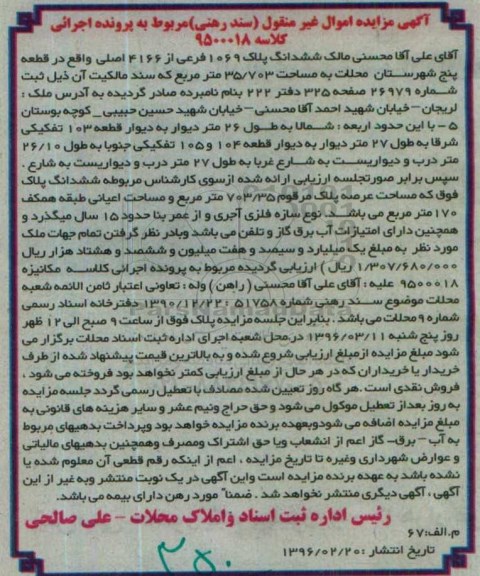 آگهی مزایده اموال غیر منقول (سند رهنی)مربوط به پرونده اجرائی
کلاسه ۹۵۰۰۰۱۸
آقای علی آقا محسنی مالک ششدانگ پلاک ۱۰۶۹ فرعی از ۴۱۶۶ اصلی واقع در قطعه
پنج شهرستان محلات به مساحت ۳۵/۷۰۳ متر مربع که سند مالکیت آن ذیل ثبت
شماره ۲۶۹۷۹ صفحه ۳۲۵ دفتر ۲۲۲ بنام نامبرده صادر گردیده به آدرس ملک :
لریجان – خیابان شهید احمد آقا محسنی – خیابان شهید حسین حبیبی _ کوچه بوستان
۵ – با این حدود اربعه : شمالا به طول ۲۶ متر دیوار به دیوار قطعه ۱۰۳ تفکیکی
شرقا به طول ۲۷ متر دیوار به دیوار قطعه ۱۰۴ و ۱۰۵ تفکیکی جنوبا به طول ۲۶/۱۰
متر درب و دیواریست به شارع غربا به طول ۲۷ متر درب و دیواریست به شارع .
سپس برابر صورتجلسه ارزیابی ارائه شده ازسوی کارشناس مربوطه ششدانگ پلاک
فوق که مساحت عرصه پلاک مرقوم ۷۰۳/۳۵ متر مربع و مساحت اعیانی طبقه همکف
۱۷۰ متر مربع می باشد نوع سازه فلزی آجری و از عمر بنا حدود ۱۵ سال میگذرد و
همچنین دارای امتیازات آب برق گاز و تلفن می باشد وبادر نظر گرفتن تمام جهات ملک
مورد نظر به مبلغ یک میلیارد و سیصد و هفت میلیون و ششصد و هشتاد هزار ریال
(۱/۳۰۷/۶۸۰/۰۰۰ ریال) ارزیابی گردیده مربوط به پرونده اجرائی کلاسه مکانیزه
۹۵۰۰۰۱۸ علیه : آقای علی آقا محسنی ( راهن ) وله : تعاونی اعتبار ثامن الائمه شعبه
محلات موضوع سند رهنی شماره ۵۱۷۵۸ : ۱۳۹۰/۱۲/۲۲ دفترخانه اسناد رسمی
شماره ۹ محلات می باشد . بنابراین جلسه مزایده پلاک فوق از ساعت ۹ صبح الی ۱۲ ظهر
روز پنج شنبه ۱۳۹۶/۰۳/۱۱ در محل شعبه اجرای اداره ثبت اسناد محلات برگزار می
شود مبلغ مزایده ازمبلغ ارزیابی شروع شده و به بالاترین قیمت پیشنهاد شده از طرف
خریدار یا خریداران که در هر حال از مبلغ ارزیابی کمتر نخواهد بود فروخته می شود ،
فروش نقدی است . هر گاه روز تعیین شده مصادف با تعطیل رسمی گردد جلسه مزایده
به روز بعد از تعطیل موکول می شود و حق حراج ونیم عشر و سایر هزینه های قانونی به
مبلغ مزایده اضافه می شودوبعهده برنده مزایده خواهد بود وپرداخت بدهیهای مربوط
به آب – برق– گاز اعم از انشعاب ویا حق اشتراک ومصرف وهمچنین بدهیهای مالیاتی
و عوارض شهرداری وغیره تا تاریخ مزایده ، اعم از اینکه رقم قطعی آن معلوم شده یا
نشده باشد به عهده برنده مزایده است واین آگهی در یک نوبت منتشر وبه غیر از این
آگهی ، آگهی دیگری منتشر نخواهد شد . ضمنا" مورد رهن دارای بیمه می باشد.
رئیس اداره ثبت اسناد واملاک محلات – علی صالحی
م.الف:۶۷
تاریخ انتشار :۱۳۹۶/۰۲/۲۰